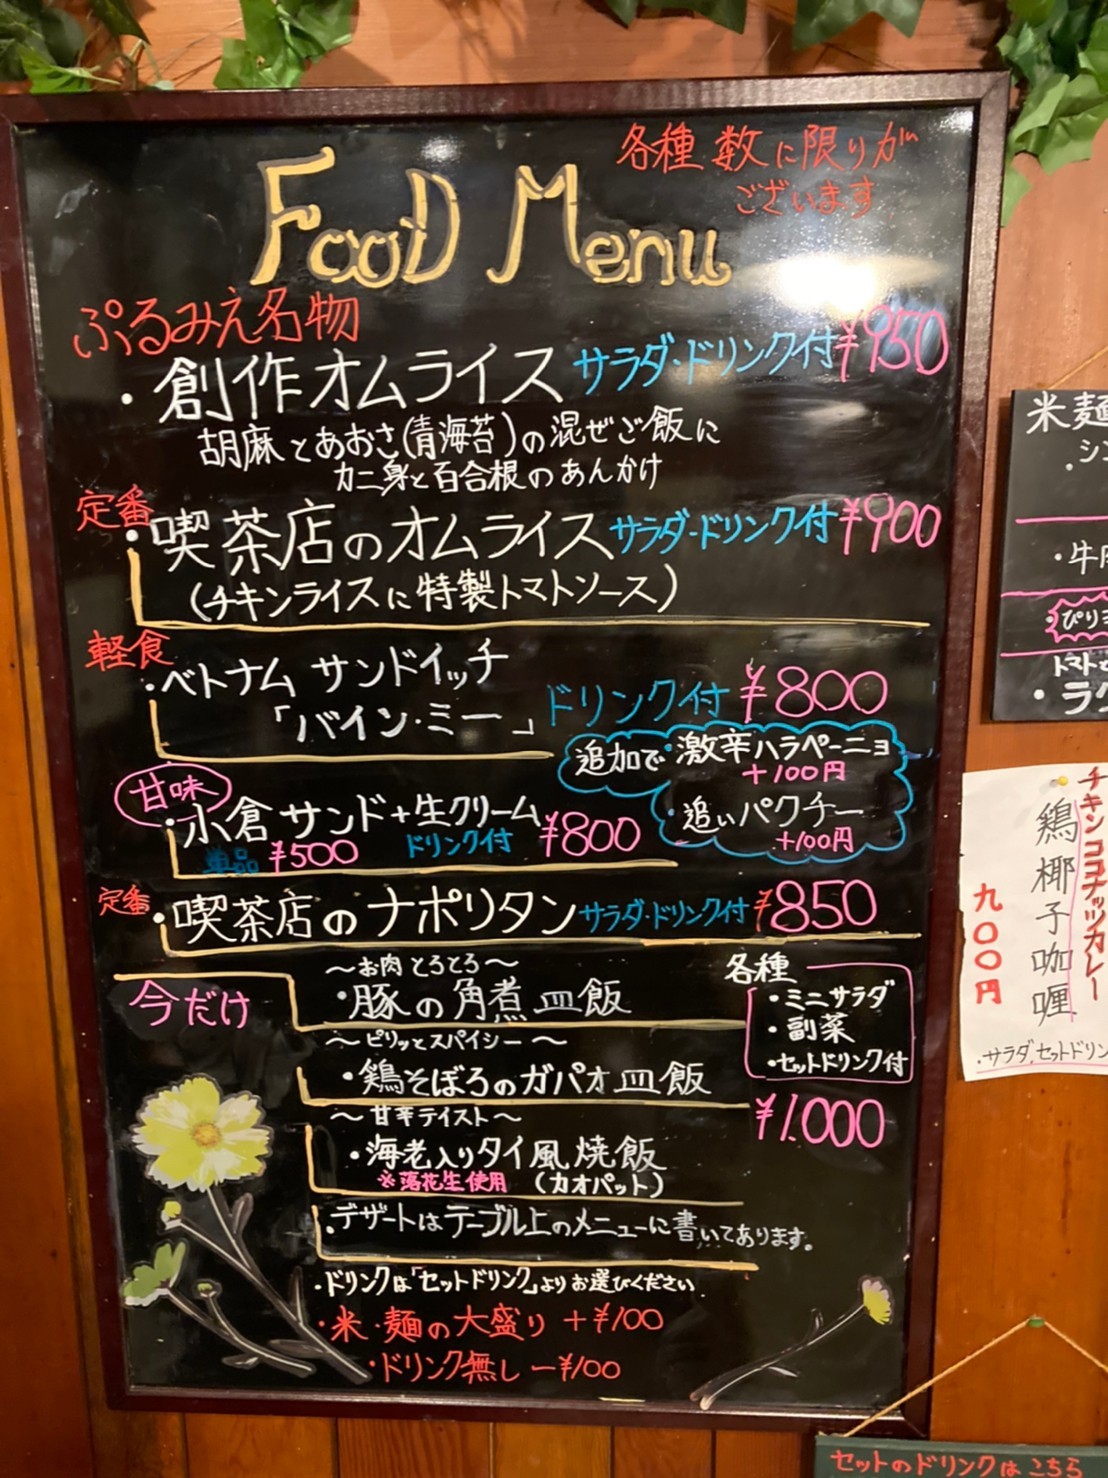 各種 数に限りが
ございます
Food Menu
ぷるみえ名物
・創作オムライス サラダ・ドリンク付 ¥950
胡麻とあおさ(青海苔)の混ぜご飯に
カニ身と百合根のあんかけ
定番
・喫茶店のオムライス サラダ・ドリンク付 ¥900
(チキンライスに特製トマトソース)
軽食
・ベトナム サンドイッチ
「バイン・ミー」 ドリンク付 ¥800
追加で・激辛ハラペーニョ
+100円
・追いパクチー
+100円
甘味
・小倉サンド+生クリーム
単品 ¥500 ドリンク付 ¥800
定番
・喫茶店のナポリタン サラダ・ドリンク付 ¥850
今だけ
〜お肉とろとろ〜
・豚の角煮皿飯
〜ピリッとスパイシー〜
・鶏そぼろのガパオ皿飯
〜甘辛テイスト〜
・海老入りタイ風焼飯
※落花生使用 (カオパット)
各種
・ミニサラダ
・副菜
・セットドリンク付
¥1.000
・デザートはテーブル上のメニューに書いてあります。
・ドリンクは「セットドリンク」よりお選びください.
・米・麺の大盛り +¥100
・ドリンク無し ー¥100
米麺
・牛
・ぴり
トマト
・ラク
チキンココナッツカレー
鶏椰子咖喱
九００円
・サラダ、セットドリン
セットのドリンクはこちら